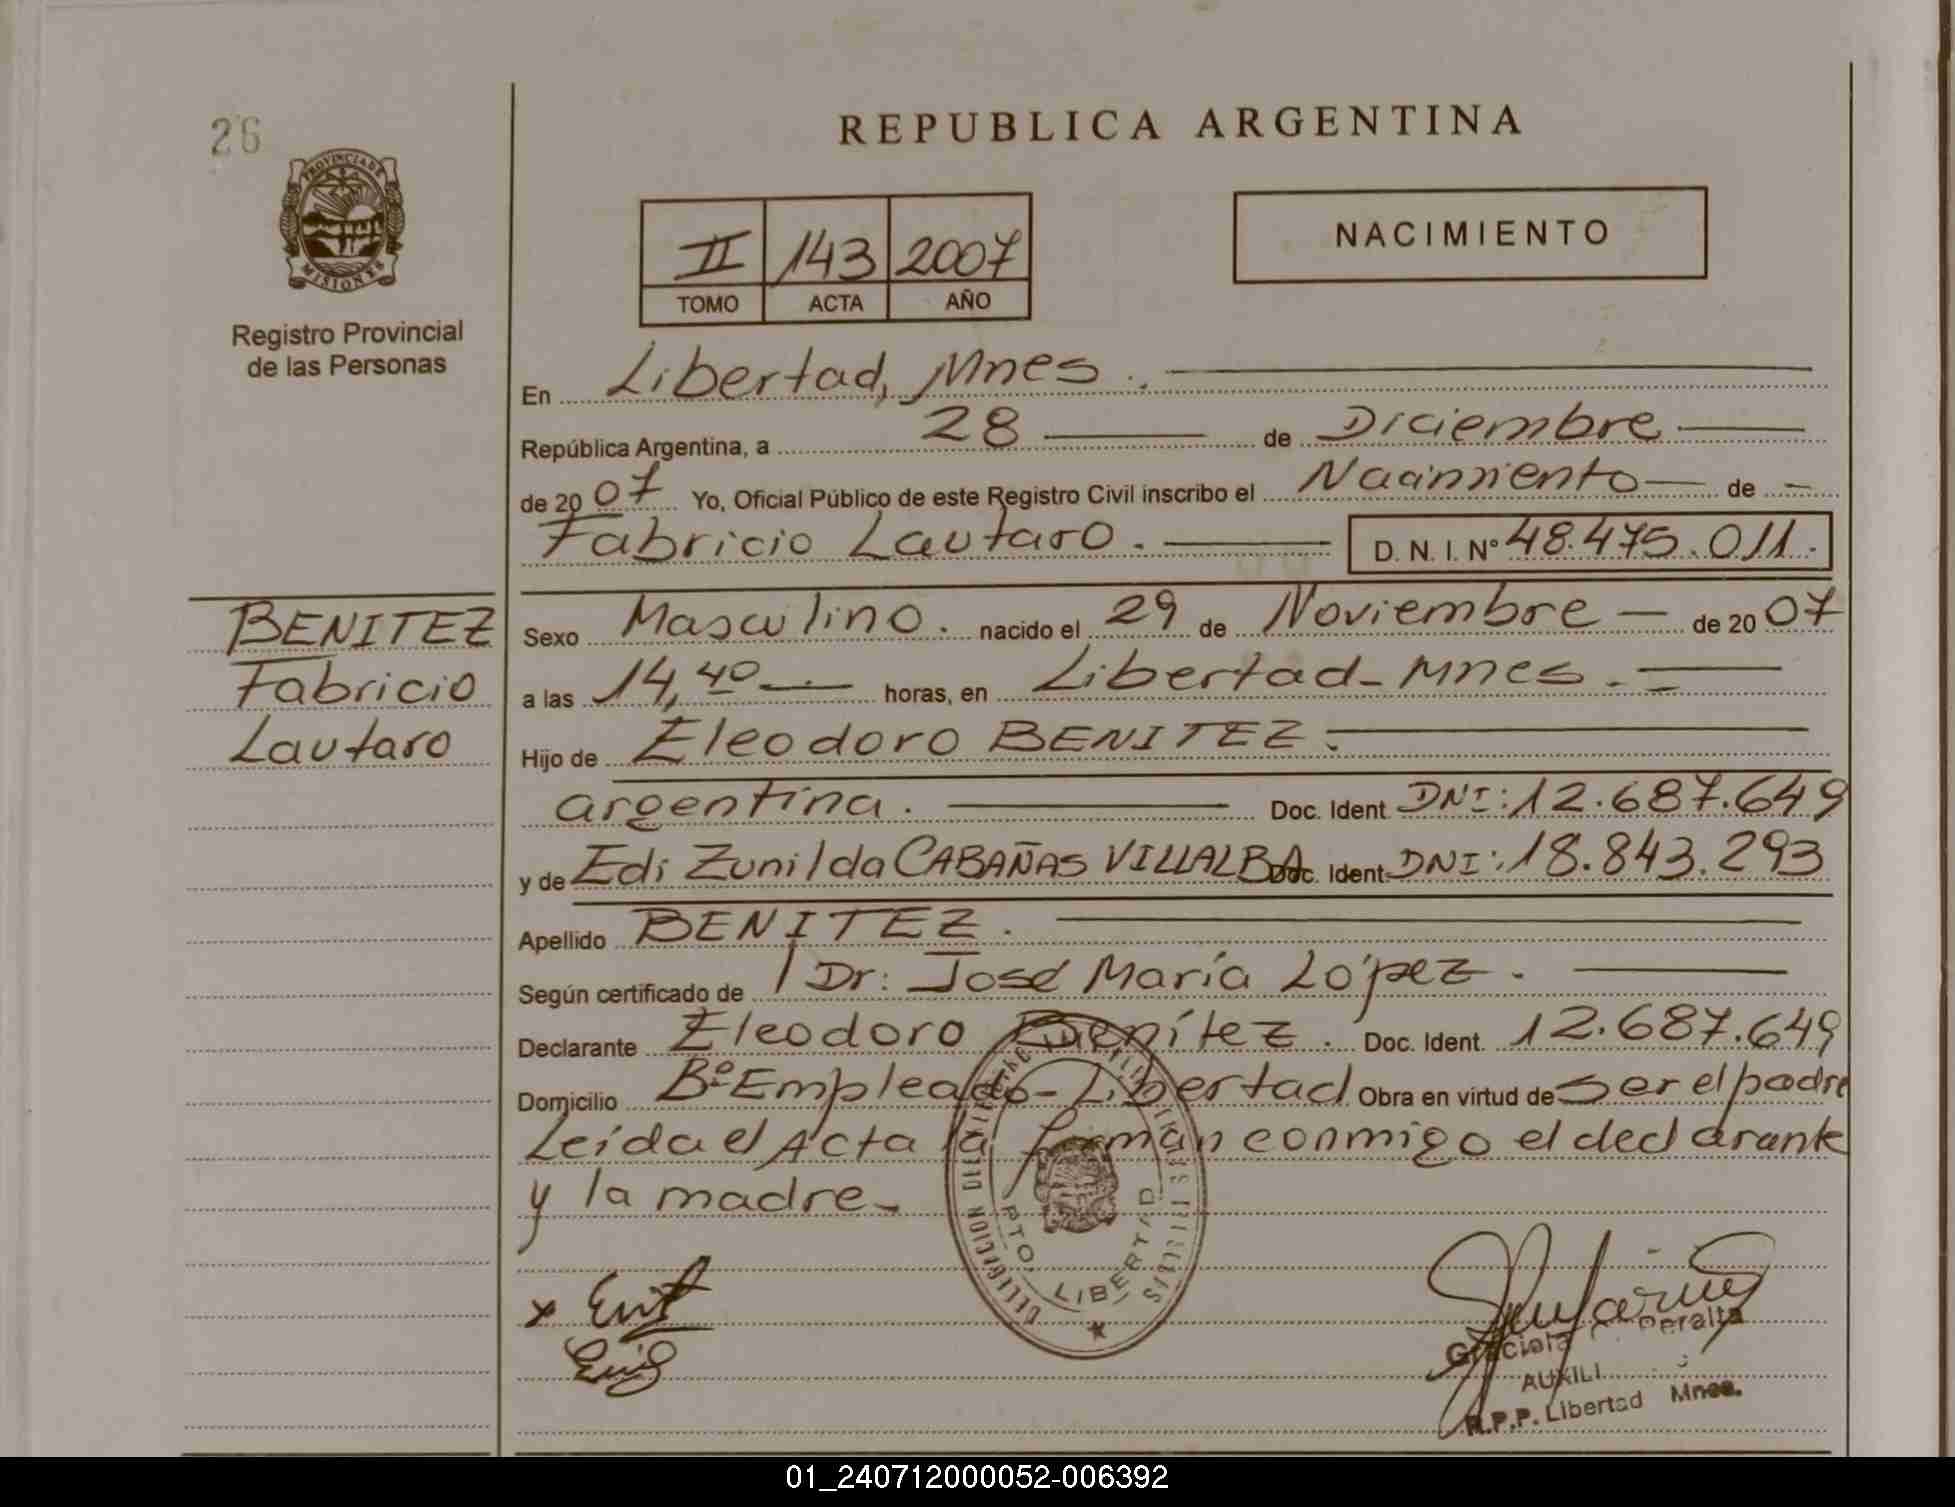 26
PROVINCIA DE
MISIONES
Registro Provincial
de las Personas
BENITEZ
Fabricio
Lautaro
REPUBLICA ARGENTINA
II 143 2007
TOMO ACTA AÑO
NACIMIENTO
En Libertad, Mnes.
República Argentina, a 28 de Diciembre
de 2007 Yo, Oficial Público de este Registro Civil inscribo el Nacimiento de
Fabricio Lautaro. D. N. I. N° 48.475.011.
Sexo Masculino. nacido el 29 de Noviembre de 2007
a las 14,40 horas, en Libertad - Mnes.
Hijo de Eleodoro BENITEZ.
argentina. Doc. Ident. DNI: 12.687.649
y de Edi Zunilda CABAÑAS VILLALBA Doc. Ident. DNI: 18.843.293
Apellido BENITEZ.
Según certificado de Dr: José María López.
Declarante Eleodoro Benítez. Doc. Ident. 12.687.649
Domicilio Bº Empleado - Libertad Obra en virtud de ser el padre
Leída el Acta la firman conmigo el declarante
y la madre.
DELEGACION DEL
PTO. LIBERTAD
x
Graciela Peralta
AUXILI
R.P.P. Libertad Mnes.
01_240712000052-006392